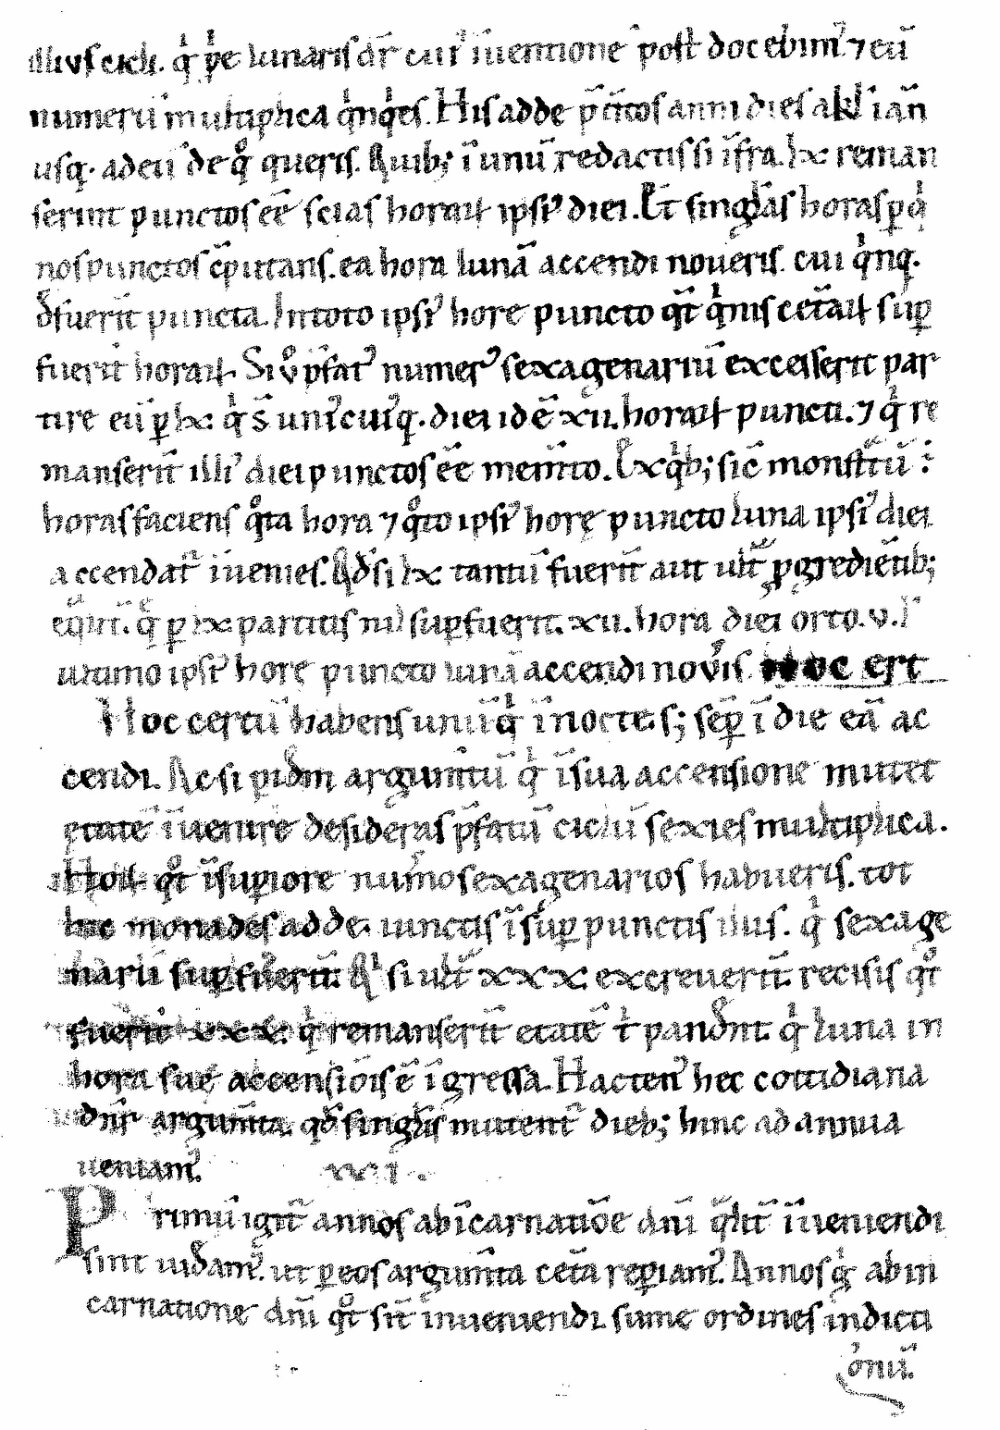 illius cicli. q̇ ṗe lunaris dr̄ cui' īuentione post docebim'. ⁊ eū
numerū multiplica q̇nq̇es. His adde p̄t̄itos anni dies a kl' ian̄
usq; ad eū de q̊ queris. Quib; ī unū redactis si īfra .lx. reman
serint punctos eē scias horaꝝ ipsi' diei. Et singl̄as horas ꝑ q̇
nos punctos c̄putans. ea hora lunā accendi noueris. cui q̇nq;
d̄fuerīt puncta. In toto ipsi' hore puncto q̄t q̇nis cet̄aꝝ suꝑ
fuerīt horaꝝ. Si v̊ p̄fat' numer' sexagenariū excesserit par
tire eū ꝑ lx. q̇ s̄ uni'cui'q; diei id ē xii. horaꝝ puncti. ⁊ q̇ re
manserīt illi' diei punctos eē mem̄to. Ex q̇b; sic monst̄tū ē
horas faciens q̊ta hora ⁊ q̊to ipsi' horę puncto luna ipsi' diei
accendat' īuenies. Ad si lx tantū fuerīt aut ult̄ ꝓgrediētib;
eq̄lit̄. q̇ ꝑ lx partitis nil suꝑfuerit. xii. hora diei orto. v. l'
ultimo ipsi' horę puncto lunā accendi nov̄is. Hoc cert
Hoc certū habens unū q̇ ī nocte. s; sēꝑ ī die eā ac
cendi. Ac si ꝑ id̄m argum̄tū q̇ ī sua accensione mutet
etatē īuenire desideras p̄fatū ciclū sexies multiplica.
Hoꝝ q̊t īsuꝑiore num̄o sexagenarios habueris. tot
huc monades adde. iunctis īsuꝑ punctis illius. q̇ sexage
nariū suꝑfuerīt. Q̇ si ult̄ xxx. excreuerīt. recisis q̊t
fuerīt xxx. q̇ remanserīt etatē t̄ pand̄nt. q̇ luna in
hora suę accensiōis ē īgressa. Hacten' hec cottidiana
dn̄r argum̄ta. qd̄ singl̄is mutent' dieb; hinc ad annua
ueniam'.
Primū igit̄ annos ab īcarnatiōe dn̄i q̄lit̄ īueniendi
sint uid̄am'. ut ꝑ eos argum̄ta cet̄a reꝑiam'. Annos q̇ ab in
carnatione dn̄i q̊t sīt inueniendi sume ordines indicti
onū.